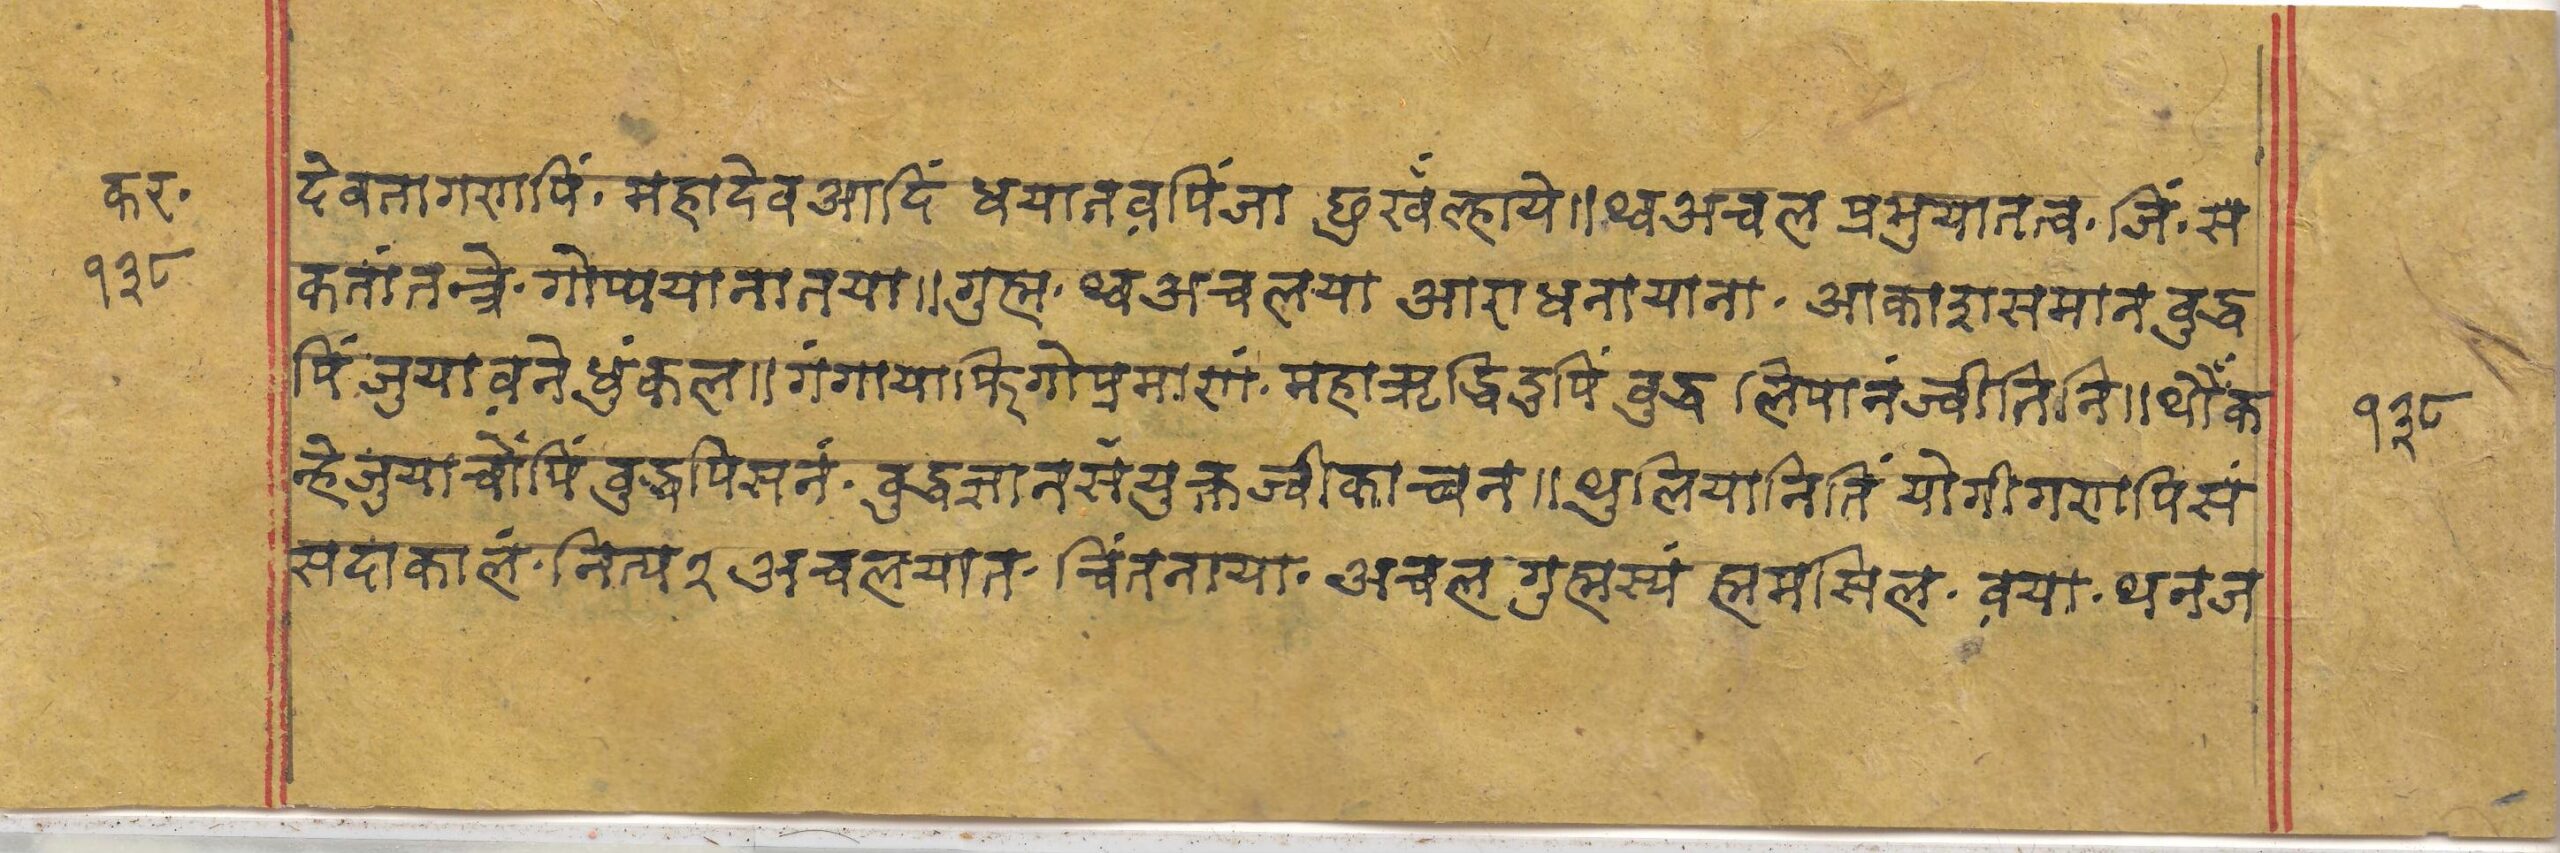 कर.
१३८
देवतागणपिं. महादेवआदिं धयातव़पिंजा छुखँल्हाये॥ थ्वअचल प्रभुयातत्व. जिं. स
कतांतन्त्रे. गोप्ययानातया॥ गुह्म. थ्वअचलया आराधनायाना. आकाशसमान बुद्ध
पिं जुयाव़ने धुंकल॥ गंगायाफिगोप्रमाणं. महाऋद्धिदुपिं बुद्ध लिपानंज्वीतिनि॥ थौंक
न्हेजुयाच्वोंपिं बुद्धपिसनं. बुद्धज्ञानसँयुक्तज्वीकाच्वन॥ थुलियानितिं योगीगणपिसं
सदाकालं. नित्य२ अचलयात. चिंतनाया. अचल गुह्मस्यं ह्ममसिल. व़या. थनज
१३८